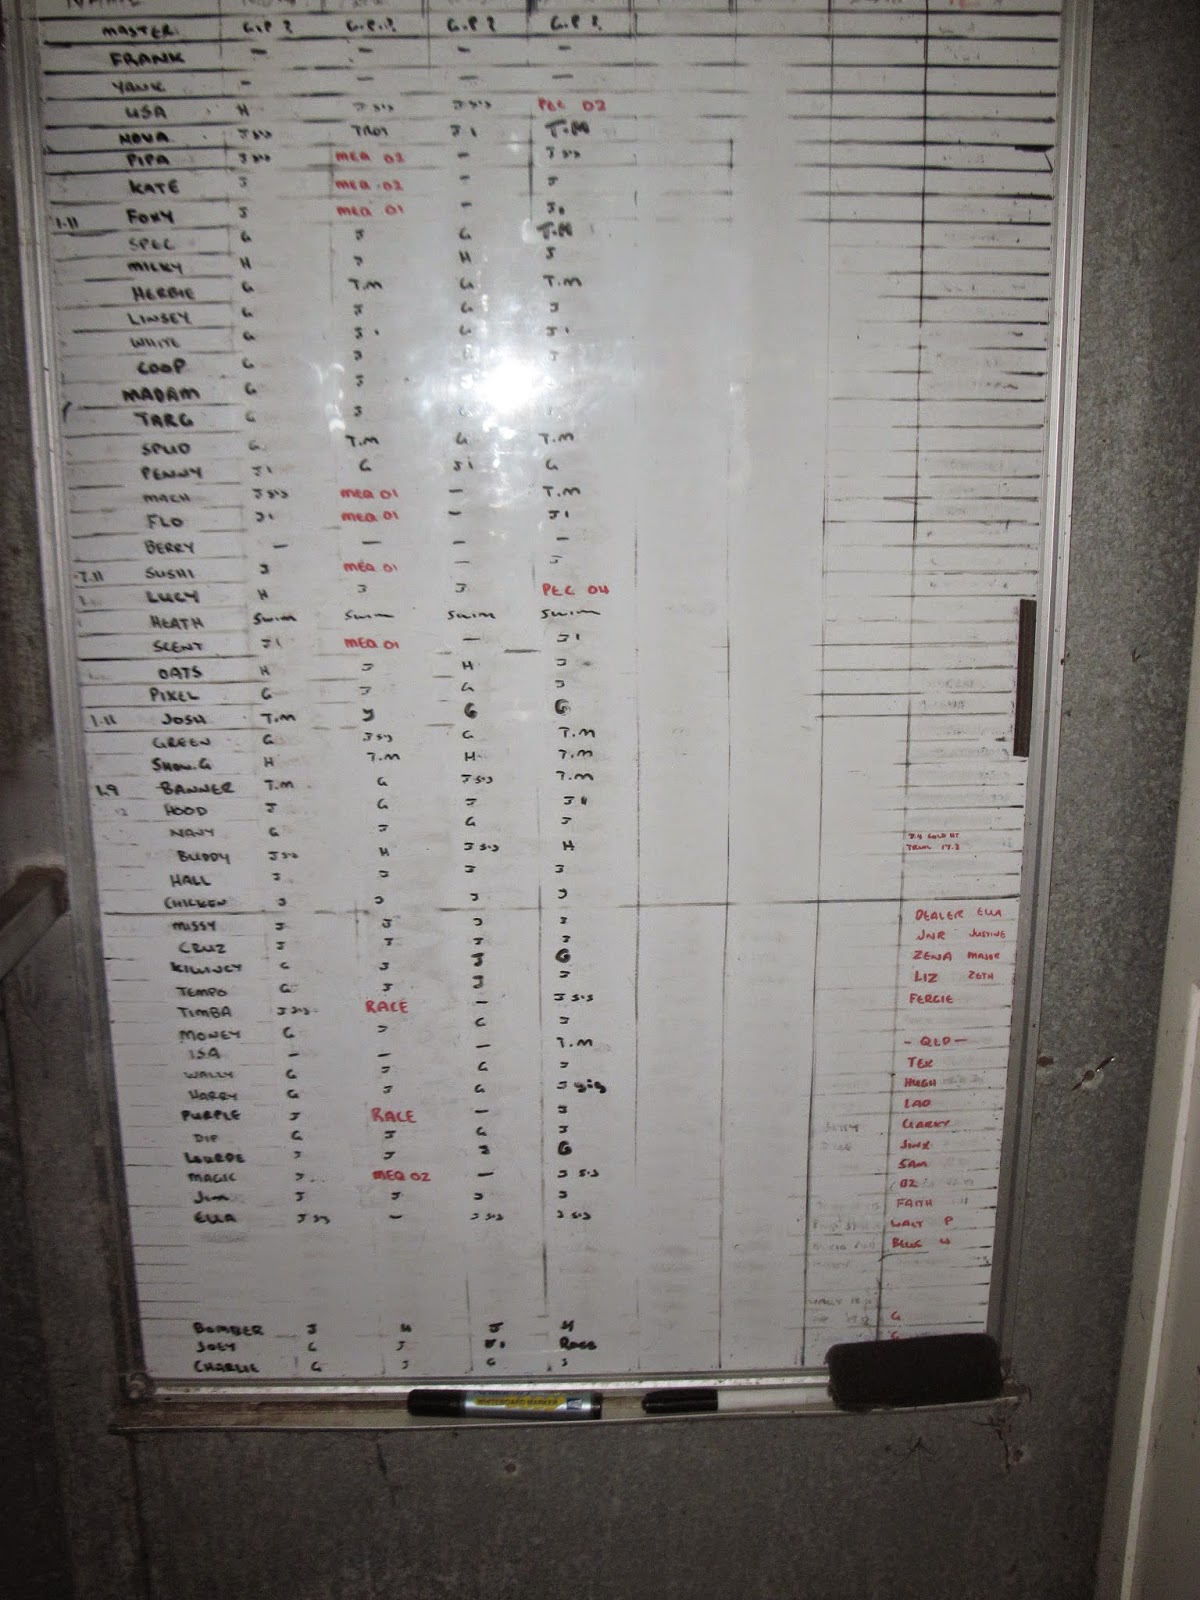 NAME
MASTER G.P? G.P.? G.P? G.P?
FRANK - - - -
YANK - - -
USA H J SIS J SIS PEC 02
NOVA J SIS TROT J 1 T.M
PIPA J SIS MEQ 02 - J SIS
KATE J MEQ 02 - J
1.11 FOXY J MEQ 01 - J1
SPEC G J G T.M
MILKY H J H J
HERBIE G T.M G T.M
LINSEY G J G J
WHITE G J 1 G J 1
COOP G J J
MADAM G J
TARG G J
SPUD G T.M G T.M
PENNY J1 G J1 G
MACH J SIS MEQ 01 - T.M
FLO J1 MEQ 01 - J1
BERRY - - - -
7.11 SUSHI J MEQ 01 - J
LUCY H J J PEC 04
HEATH SWIM SWIM SWIM SWIM
SCENT J1 MEQ 01 - J1
OATS H J H J
PIXEL G J G J
1.11 JOSH T.M J G G
GREEN G J SIS G T.M
SHOW.G H T.M H T.M
1.9 BANNER T.M G J SIS T.M
HOOD J G J J 1
NAVY G J G J
BUDDY J SIS H J SIS H
HALL J J J J
CHICKEN J J J J
MISSY J J J J
CRUZ J J J J
KILLINCY G J J G
TEMPO G J J J
TIMBA J SIS RACE - J SIS
MONEY G J G J
ISA - - - T.M
WALLY G J G J
HARRY G J G J SIS
PURPLE J RACE - J
DIP G J G J
LOURDE J J J G
MAGIC J MEQ 02 - J SIS
JIM J J J J
ELLA J SIS - J SIS J SIS
BOMBER J H J H
JOEY G J J1 RACE
CHARLIE G J G J
DEALER ELLA
JNR JUSTINE
ZENA MAJOR
LIZ ZETH
FERGIE
- QLD -
TEX
HUGH
LAD
CLARKY
JINX
SAM
OZ
FAITH
WALT P
BLUE W
G
G
WHITEBOARD MARKER